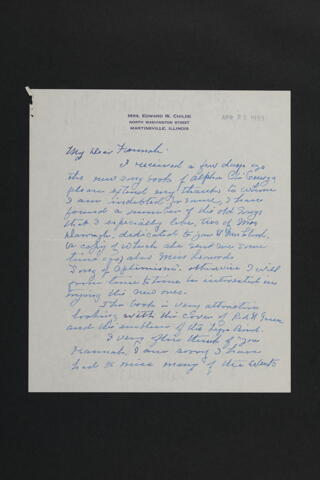 MRS. EDWARD W. CHILDS
NORTH WASHINGTON STREET
MARTINSVILLE, ILLINOIS
APR 21
My dear Hannah:
I received a few days ago
the new song book of Alpha Chi Omega
please extend my thanks to whom
I am indebted for same, I have
found a number of the old songs
that I especially like, this of Mrs
dedicated to you & Mrs
(a copy of which she sent me some
time ago) also Miss
"Song of Optimism". otherwise I will
from time to time be interested in
the new ones.
The book is very attractive
looking with the cover of Red & Green
and the emblem of the Lyre Bird.
I very often think of you
Hannah, I am sorry I have
had to miss many of the events